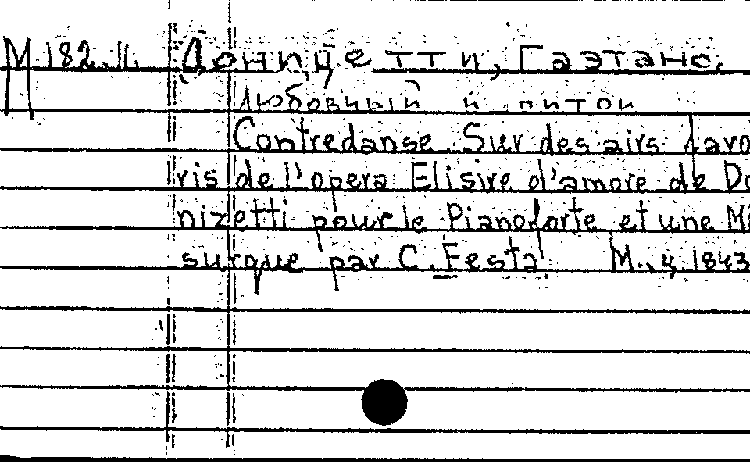 M 182.11. Доницетти, Гаэтано.
Любовный напиток
Contredanse Sur des airs favo
ris de l'opera Elisire d'amore de Do
nizetti pour le Pianoforte et une Mi
surque par C. Festa M., ц. 1843